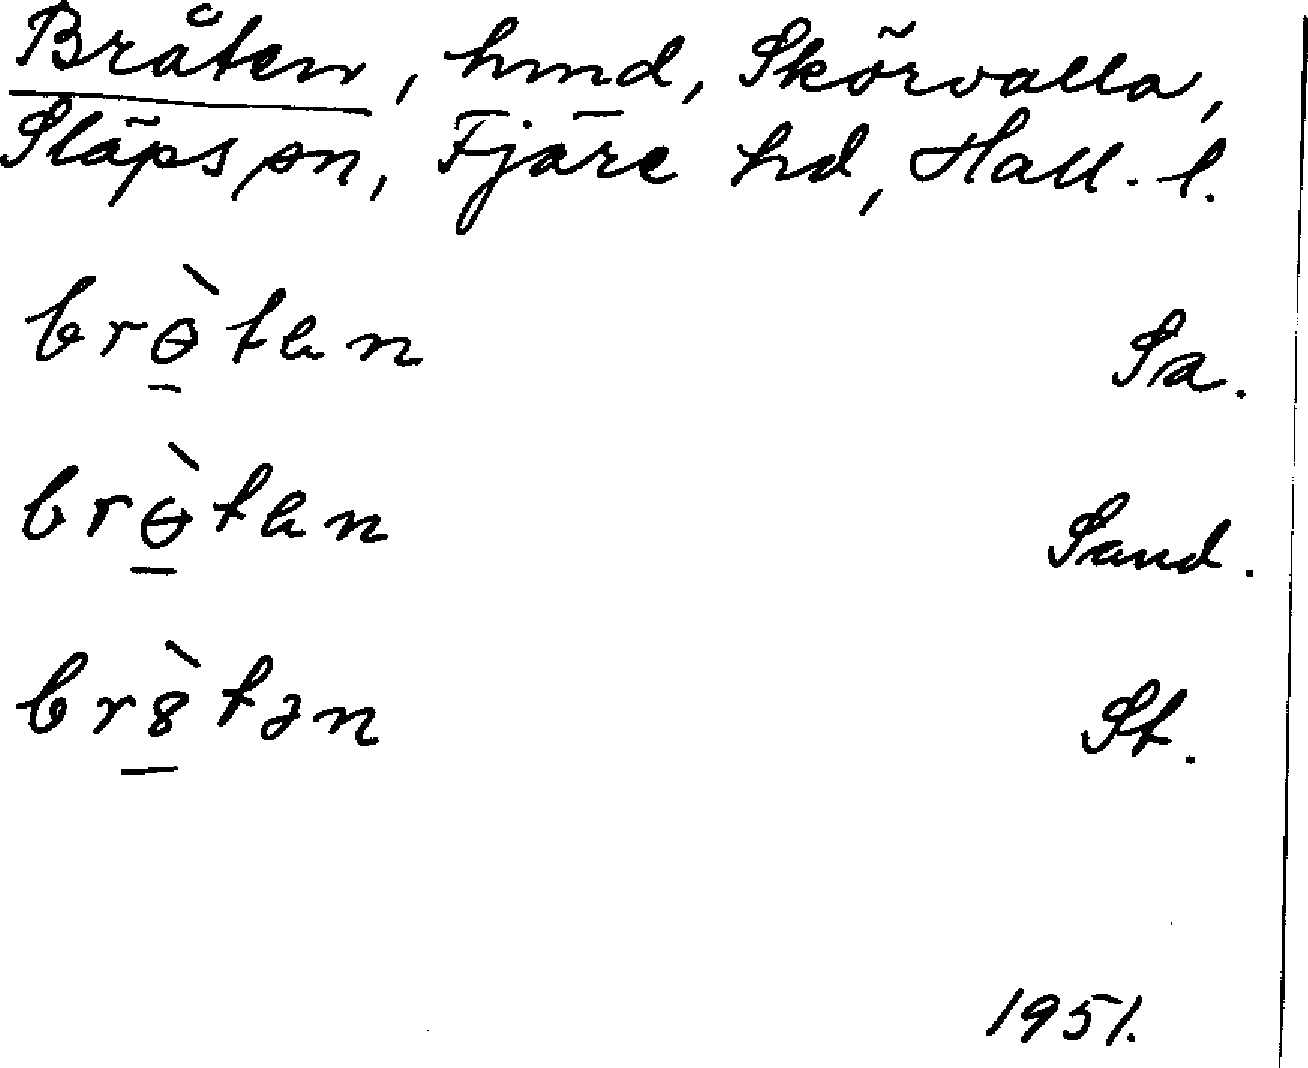 Bråten, hmd, Skörvalla,
Släps sn, Fjäre hd, Hall. l.
brɵ̀tan Sa.
brɵ̀tan Sand.
br8̀tən St.
1951.